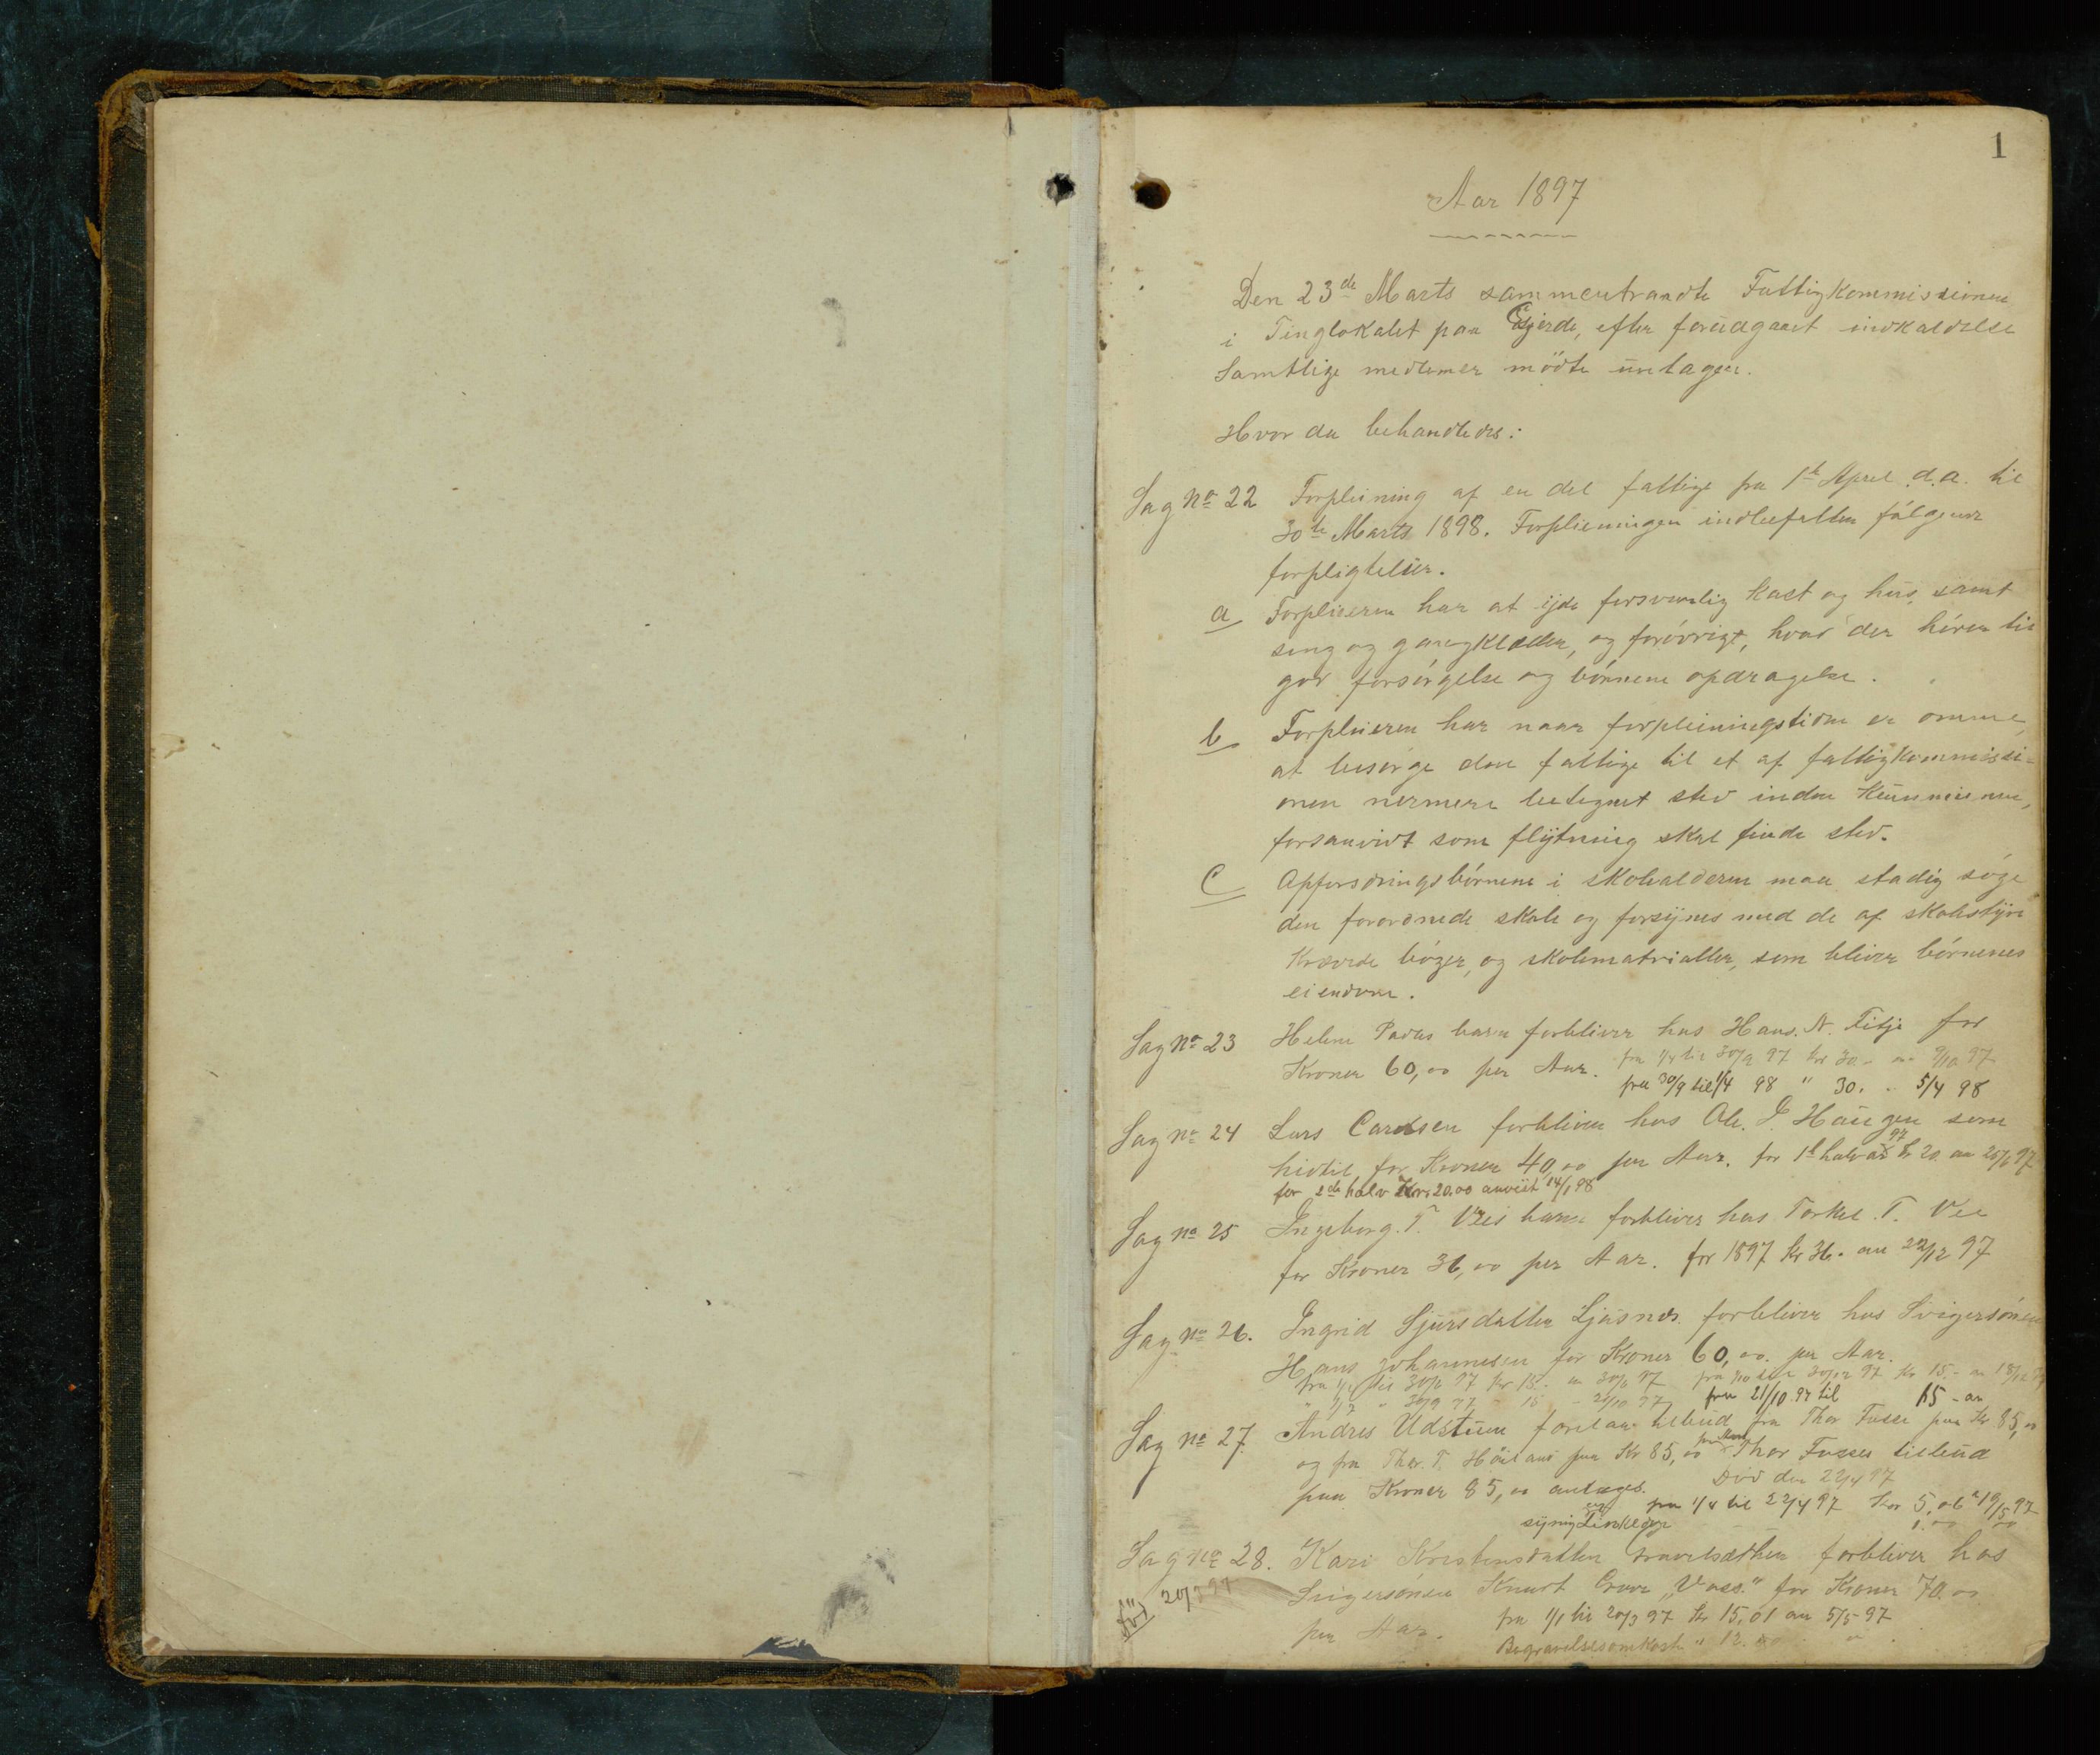 1
Aar 1897
Den 23de Marts sammentraadte Fattigkommissionen
i Tinglokalet paa Gjerde, efter forudgaaet indkaldelse
Samtlige medlemer mödte
Hvor da behandledes:
Sag No 22 Forpleining af en del fattige fra 1te April d.a. til
30te Marts 1898. Forpleiningen indbefatter følgende
forpligtelser.
a Forpleieren har at yde forsvarlig kost og hus, samt
seng og gangklæder, og forövrigt, hvad der hörer til
god forsörgelse og börnene opdragelse.
b Forpleieren har naar forpleiningstiden er omme,
at besörge den fattige til et af fattigkommissi-
onen nermere betegnet sted inden Kommunen,
forsauvidt som flytning skal finde sted.
c Opfostringsbörnene i skolealderen maa stadig söge
den forordnede skole og forsynes med de af skolestyre
krævede böger, og skolematrialler, som bliver börnenes
eiendom.
Sag No 23 Helene barn forbliver hos Hans. N. Titje for
Kroner 60,00 per Aar. fra 1/4 til 30/9 97 kr 30.- an 9/10 97
fra 30/9 til 1/4 98 " 30. - 5/4 98
Sag No 24 Lars Carlsen forbliver hos Ole. J. Haugen som
hidtil for Kroner 40,00 per Aar. for 1te halvår 97 kr 20. an 20/6 97
for 2de halv Kr. 20.00 anvist 14/1 98
Sag No 25 Ingeborg. T. Vees barn forbliver hos Torkel. T. Vee
for Kroner 36,00 per Aar. for 1897 kr 36. an 22/12 97
Sag No 26. Ingrid Sjursdatter Ljusnes. forbliver hos Svigersönen
Hans Johannesen for Kroner 60,00. per Aar.
fra 1/4 til 30/6 97 kr 15.- an 30/6 97 fra til 30/12 97 kr 15.- an 18/12 97
" 1/7 " 30/9 97 - 15 - 21/10 97 fra 21/10 97 til 15 - an
Sag No 27. Andres Udstuen forelaa tilbud fra Thor Fosse paa Kr 85,00
og fra Thor. T. Höiland paa Kr 85,00 Thor Fosses tilbud
paa Kroner 85,00 antages. Död den 22/4 97
fra 1/4 til 22/4 97 Kr 5,06 a 19/5 97
syning og Linklæder 1.00
Sag No 28. Kari Kristensdatter forbliver hos
Svigersönen Knut „Voss." for Kroner 70.00
död 20/3 97
per Aar. fra 1/1 til 20/3 97 Kr 15,01 an 5/5 97
Begravelsesomkost. " 12.00 "